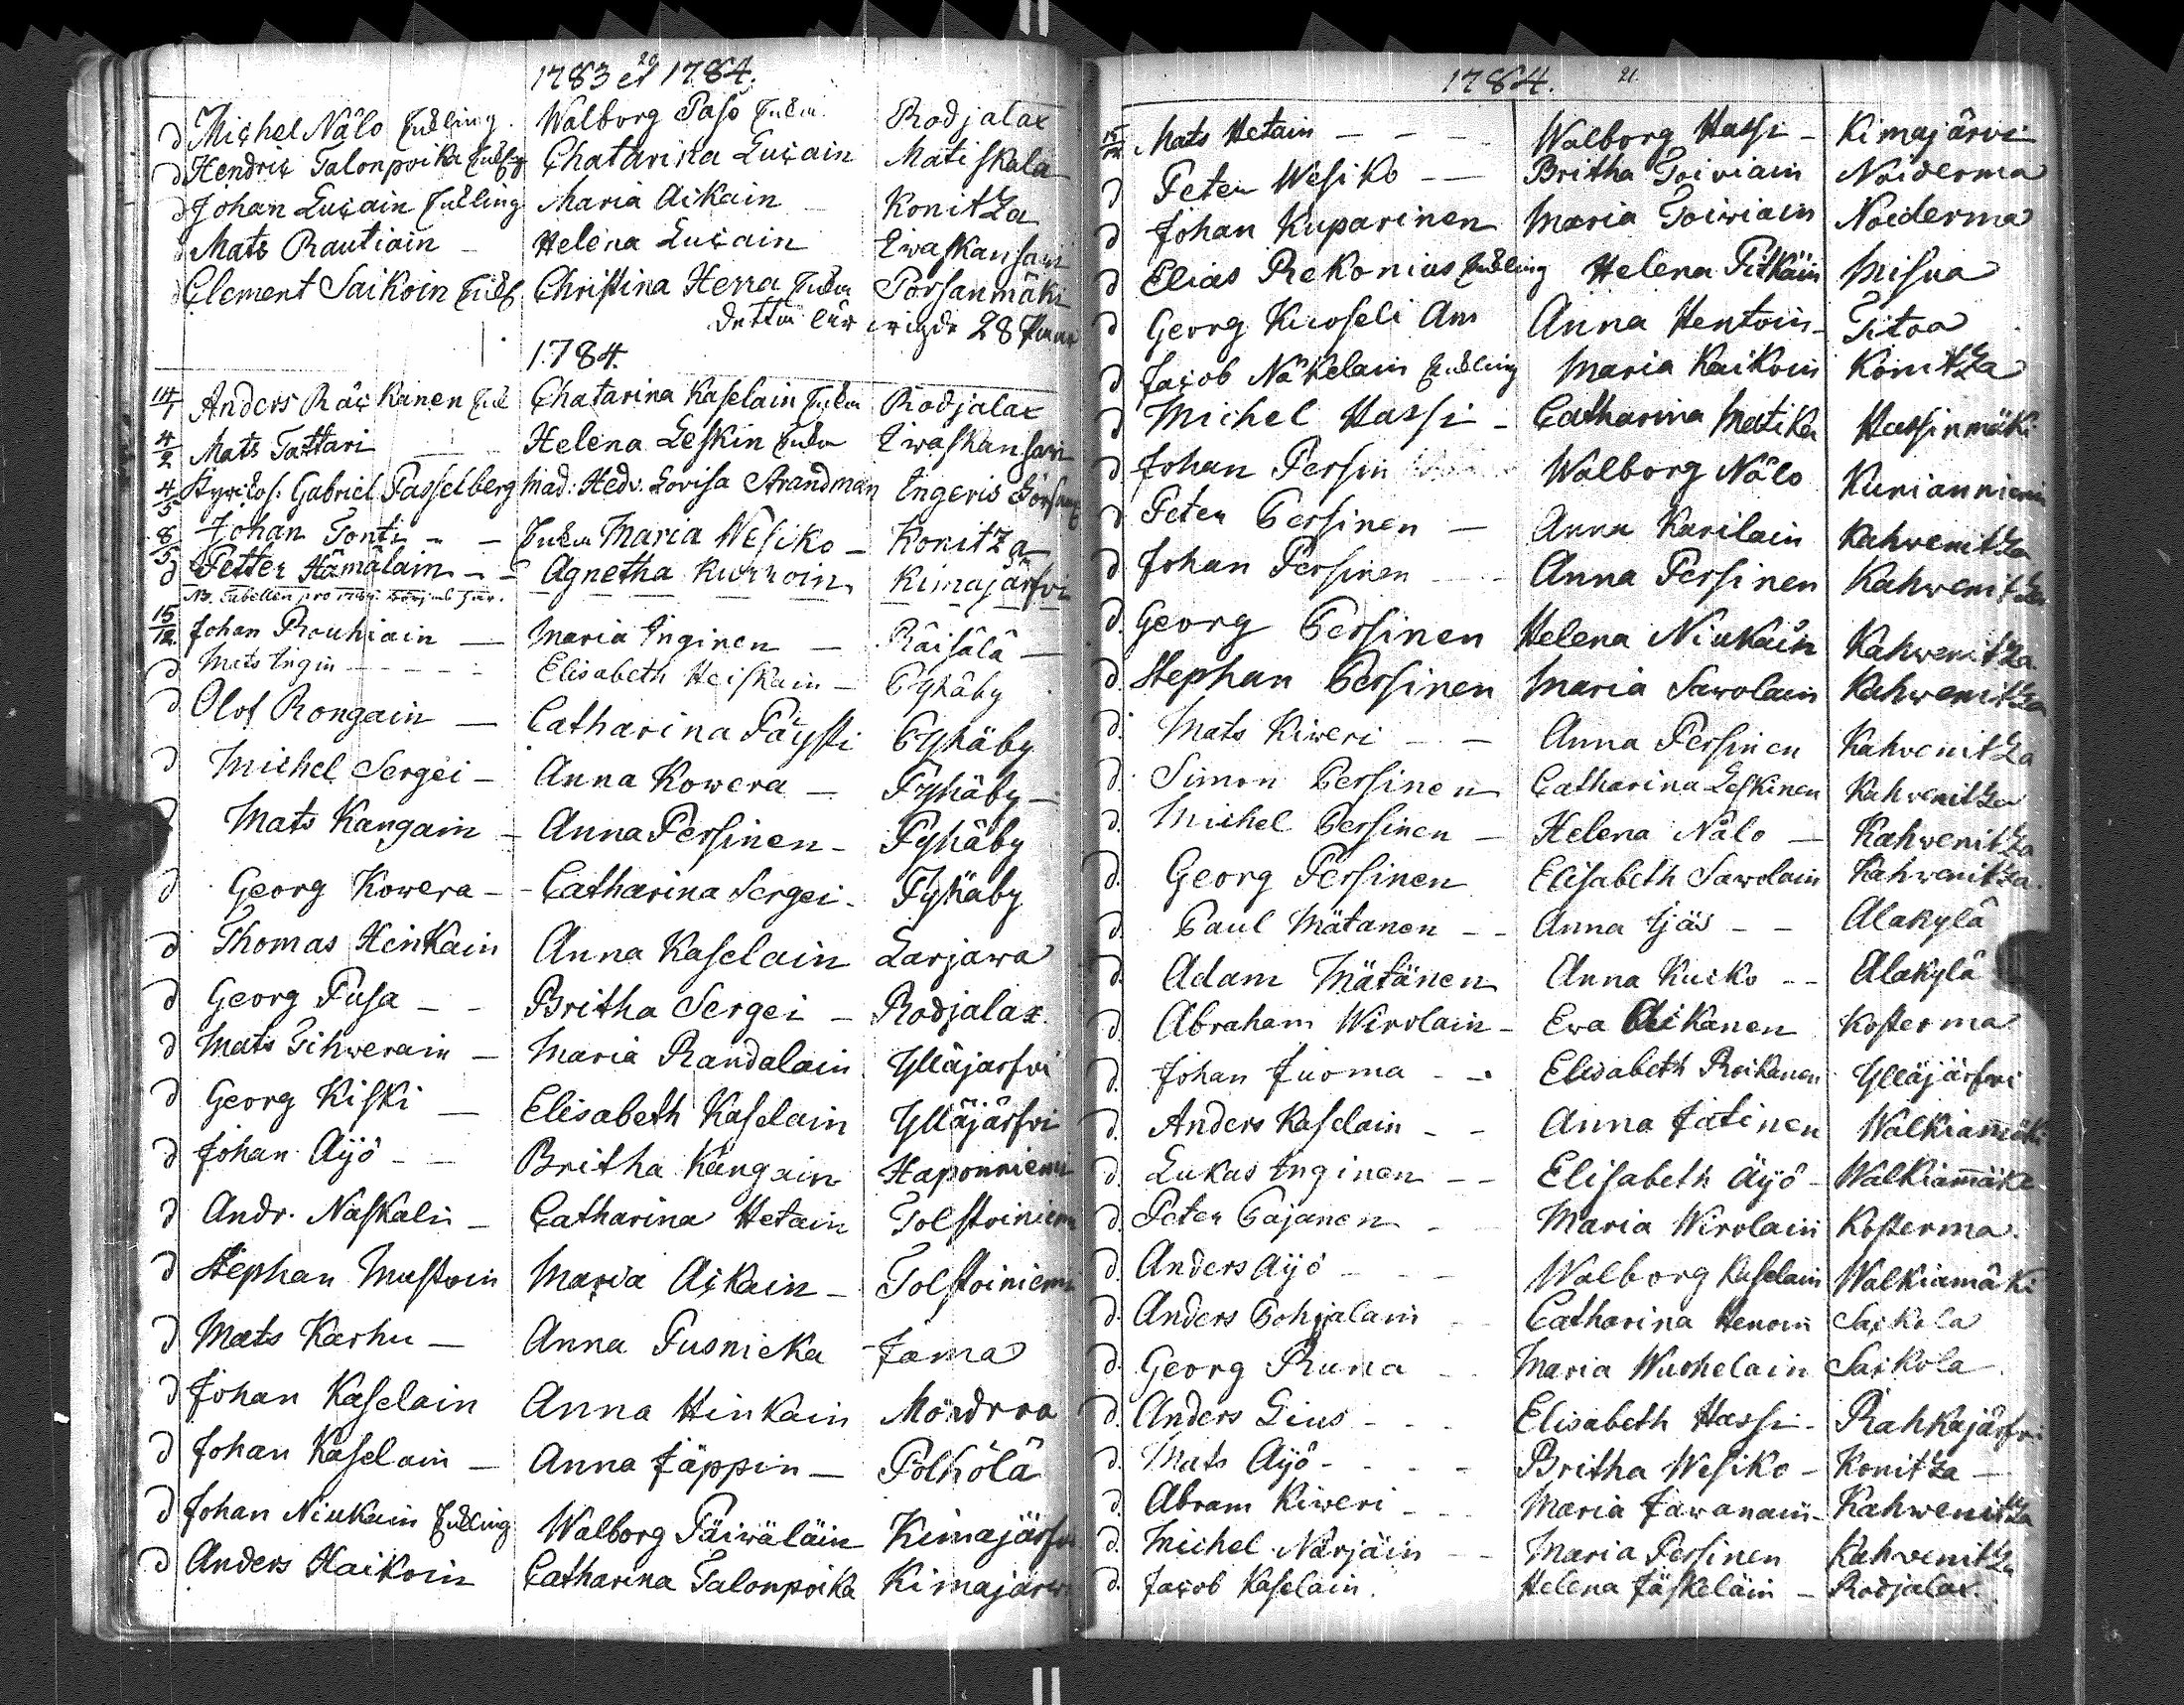 20
1783 et 1784.
d Michel Nälo Enkling. Walborg Paso Enka Rodjalax
d Hendric Talonpoika Enkling Chatarina Lucain Matiskala
d Johan Lucain Enkling Maria Aikain Konitza
d Mats Rautiain - Helena Lucain Ewaskansari
d Clement Saikoin Enkl. Christina Herra Enka Porsanmäki
28
1784.
14/1 Anders Räckänen Enk Chatarina Kaselain Enka Rodjalax
4/2 Mats Tattari Helena Leskin Enka Ewaskansari
4/5 Gabriel Passelberg Mad: Hedv. Lovisa Strandman Ingeris
8/5 Johan Tonti - - Enka Maria Wesiko - Konitza
d Petter Hämäläin - - Agnetha Kurkoin Kimajärfvi
15/12 Johan Rouhiain - Maria Inginen - Räisälä -
d Mats Ingin - - - - Elisabeth Heiskain - Pyhäby
d Olof Rongain - Catharina Päysti Pyhäby
d Michel Sergei - Anna Kowera - Pyhäby -
Mats Kangain - Anna Persinen - Pyhäby
d Georg Kowera - - Catharina Sergei - Pyhäby
d Thomas Heinkain Anna Kaselain Larjawa
d Georg Pusa - - Britha Sergei - Rodjalax
d Mats Tihwerain - Maria Randalain Ylläjärfvi
d Georg Kiski - Elisabeth Kaselain Ylläjärfvi
d Johan Äyö - - Britha Kangain Haponniemi
d Andr. Naskalin - Catharina Hetain Tolstoiniemi
d Stephan Mustoin Maria Aikain - Tolstoiniemi
d Mats Karhu - Anna Pusnicka Jama
d Johan Kaselain Anna Hinkain Möndrra
d Johan Kaselain - Anna Jäppin - Pölhölä
d Johan Niukain Enkling Walborg Päiwäläin Kimajärfvi
d Anders Haikoin Catharina Talonpoika Kimajärwi
1784. 21.
15/12 Mats Hetain - - - Walborg Hassi - Kimajärvi
d Peter Wesiko - - Britha Toiviain Noiderma
d Johan Kuparinen Maria Toiwiain Noiderma
d Elias Rekonius Enkling Helena Pitkäin Misua
d Georg Kuoseli Anna Hentoin - Titoa
d Jacob Näkelain Enkling Maria Kaikoin Konitza
d Michel Hassi - Catharina Matika Hassinmäki
d Johan Persin Walborg Nälo Kurianniemi
d Peter Persinen - Anna Karilain Kahvenitza
d Johan Persinen - - Anna Persinen Kahwenitza
d. Georg Persinen Helena Niukain Kahwenitza
d. Stephan Persinen Maria Sawolain Kahwenitza
d. Mats Kiweri - - Anna Persinen Kahvenitza
d. Simon Persinen Catharina Leskinen Kahvenitza
d. Michel Persinen - Helena Nälo - Kahvenitza
d. Georg Persinen Elisabeth Sawolain Kahvenitza.
d. Paul Mätänen - - Anna Ijäs - - Alakylä
d. Adam Mätänen Anna Kuiko - - Alakylä
d. Abraham Wirolain - Ewa Aikanen Kosterma
d. Johan Juoma - - Elisabeth Roikanen Ylläjärfvi
d. Anders Kaselain - - Anna Jätinen Walkiamäki
d. Lukas Inginen - - Elisabeth Äyö - Walkiamäki
d. Peter Pajanen - - Maria Wirolain Kosterma.
d. Anders Äyö - - - Walborg Kaselain Walkiamäki
d. Anders Pohjalain - - Catharina Henoin Saikola
d. Georg Runa - - Maria Wuohelain Saikola
d. Anders Lius - - - Elisabeth Hassi - Rahkajärfvi
d. Mats Äyö - - - - Britha Wesiko - Konitza -
d. Abram Kiweri - - - Maria Jawanain - Kahwenitza
d. Michel Närjäin - - Maria Persinen Kahvenitza
d. Jacob Kaselain. Helena Jäskeläin - Rodjalax.